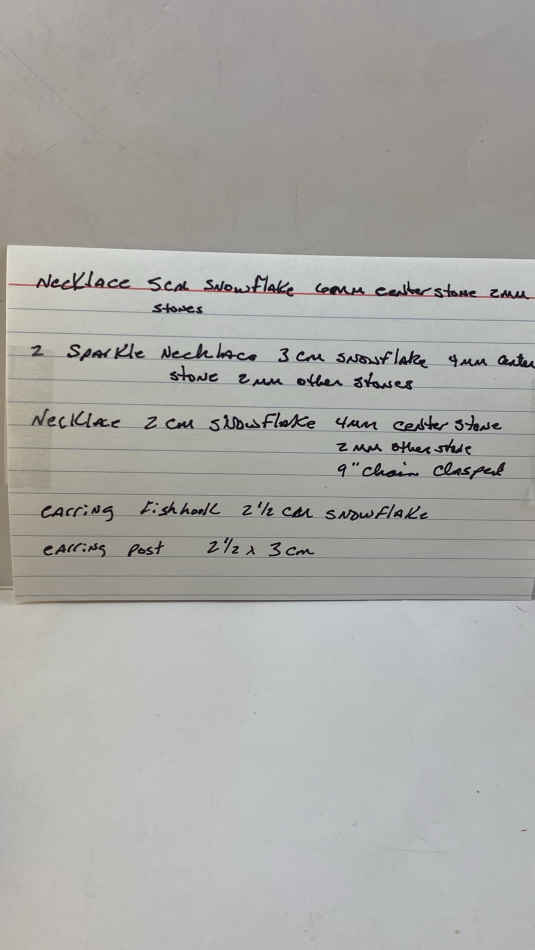 Necklace 5cm snowflake 6mm center stone 2mm
stones
2 Sparkle Necklace 3 cm snowflake 4mm center
stone 2mm other stones
Necklace 2 cm snowflake 4mm center stone
2mm other stone
9" chain clasped
earring fishhook 2 1/2 cm snowflake
earring post 2 1/2 x 3 cm